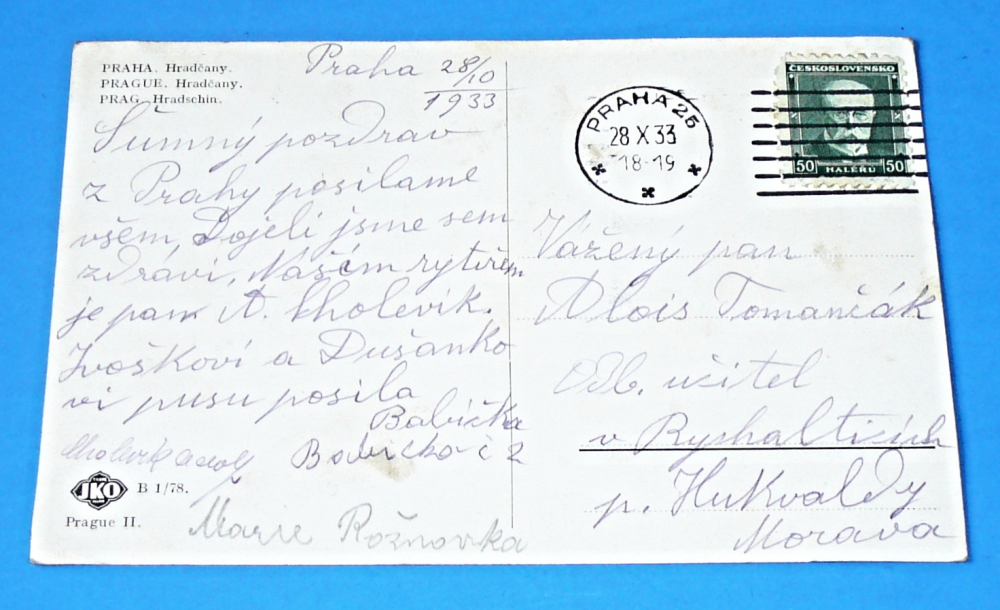 PRAHA. Hradčany.
PRAGUE. Hradčany.
PRAG. Hradschin.
Praha 28/10
1933
Šumný pozdrav
z Prahy posílame
všem, Dojeli jsme sem
zdrávi, Naším rytířem
je pan A. Cholevík.
Ivoškovi a Dušanko
vi pusu posila
Babička
Babička č 2
Cholevík Adolf
Marie Rožnovka
JKO
B 1/78.
Prague II.
PRAHA 25
28 X 33
18-19
ČESKOSLOVENSKO
50 HALÉŘŮ 50
Vážený pan
Alois Tomančák
Odb. učitel
v Rychalticích
p. Hukvaldy
Morava